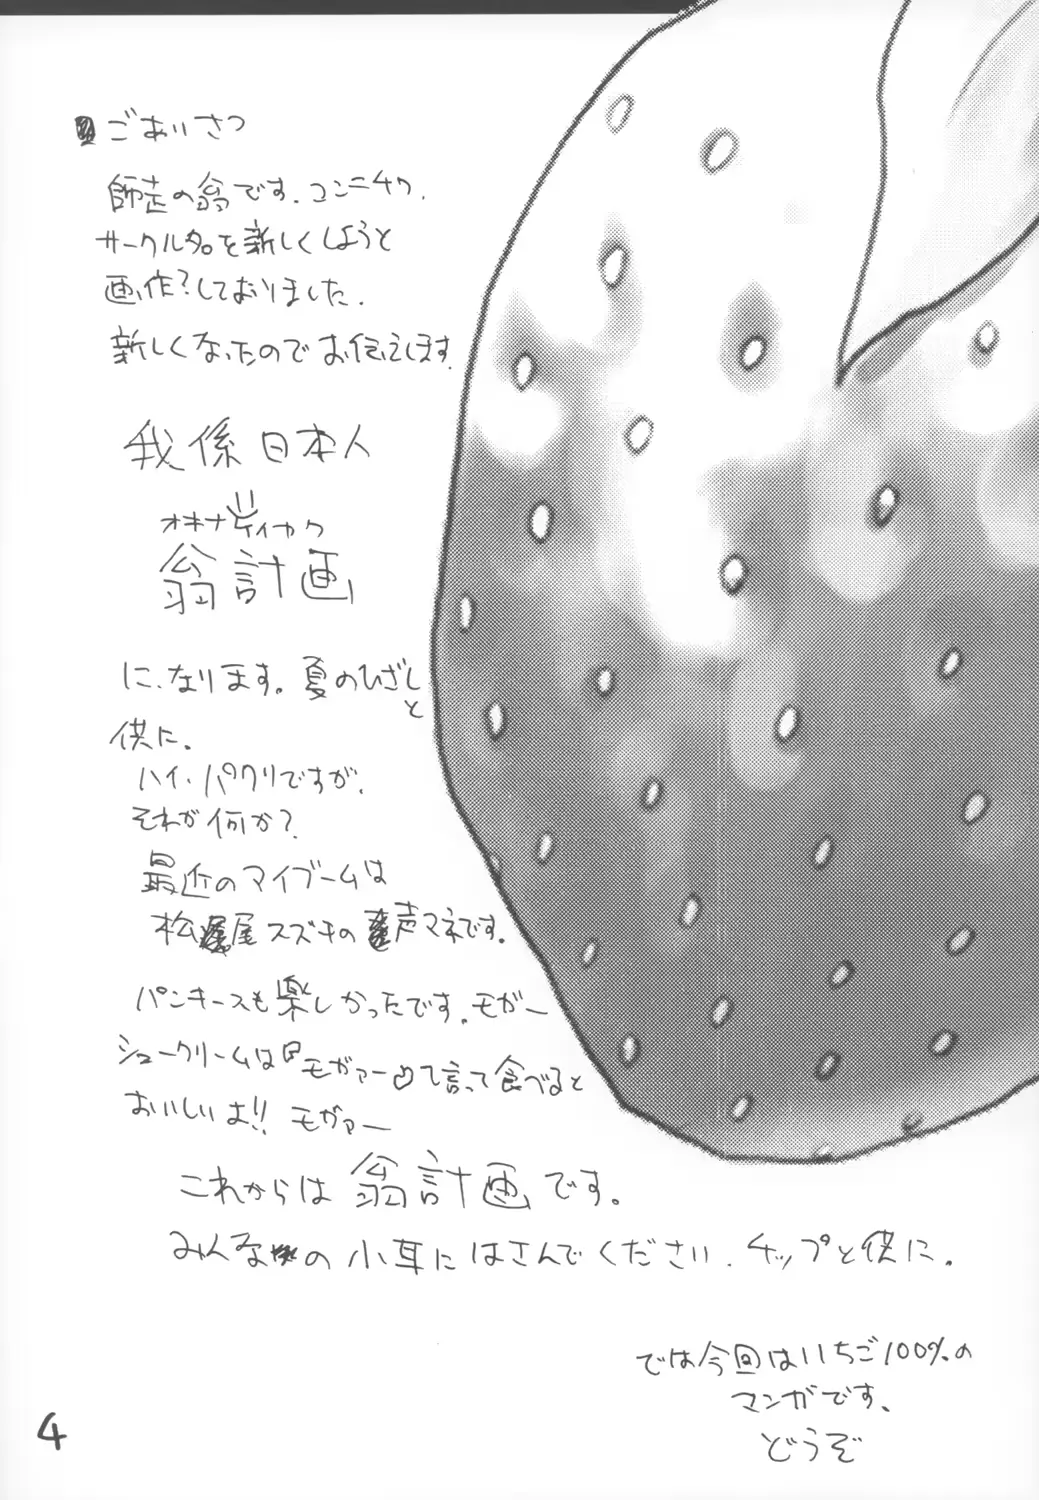 ごあいさつ
師走の翁です。コンニチワ.
サークル名を新しくしようと
画作?しておりました.
新しくなったのでお伝えします.
我係日本人
オキナケイカク
翁計画
に、なります。夏のひざしと
供に。
ハイ、パクリですが、
それが何か?
最近のマイブームは
松尾スズキの声マネです。
パンキースも楽しかったです。モガー
シュークリームは『モガァー』て言って食べると
おいしいよ!! モガァー
これからは 翁計画です。
みんなの 小耳にはさんでください. チップと供に.
では今回はいちご100%の
マンガです、
どうぞ
4